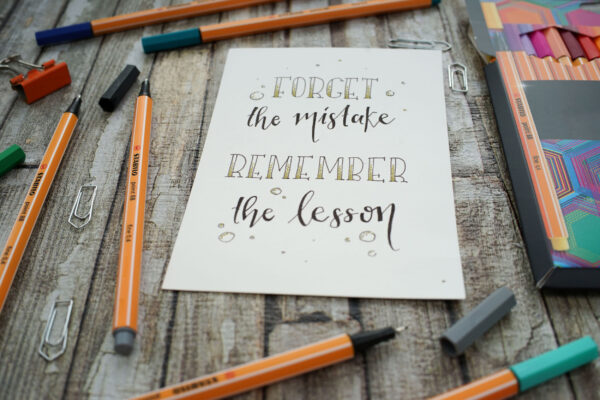 FORGET
the mistake
REMEMBER
the lesson
STABILO
STABILO
STABILO